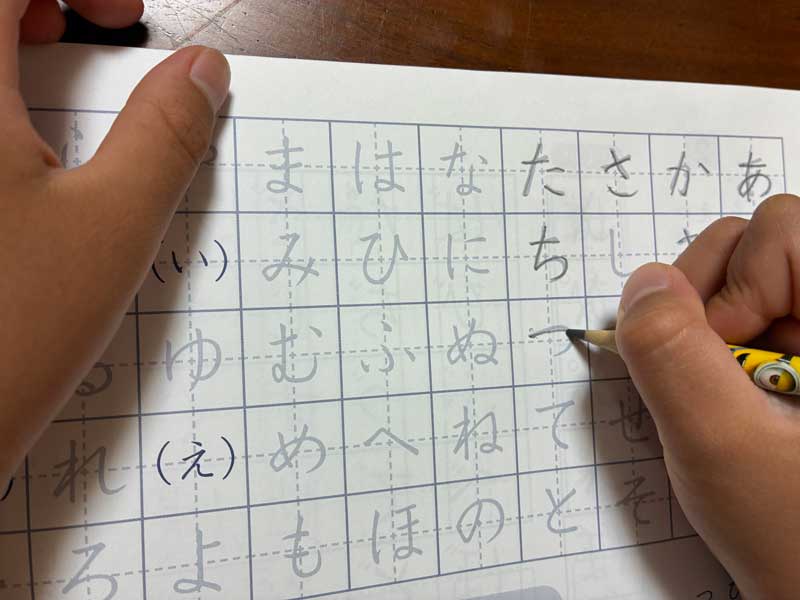 あ
か
さしせそ
たちつてと
なにぬねの
はひふへほ
まみむめも
(い)ゆ(え)よ
れろ